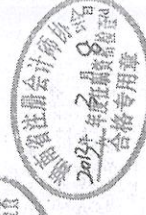 湖南省注册会计师协会
年 2 月 8 日
年度任职资格检查
合格专用章